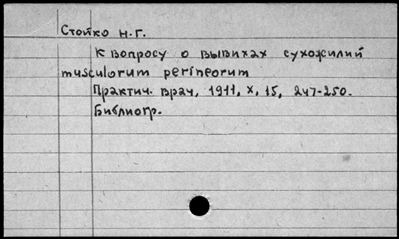 Стойко Н.Г.
К вопросу о вывихах сухожилий
musculorum perineorum
Практич. врач, 1911, X, 15, 247-250.
Библиогр.